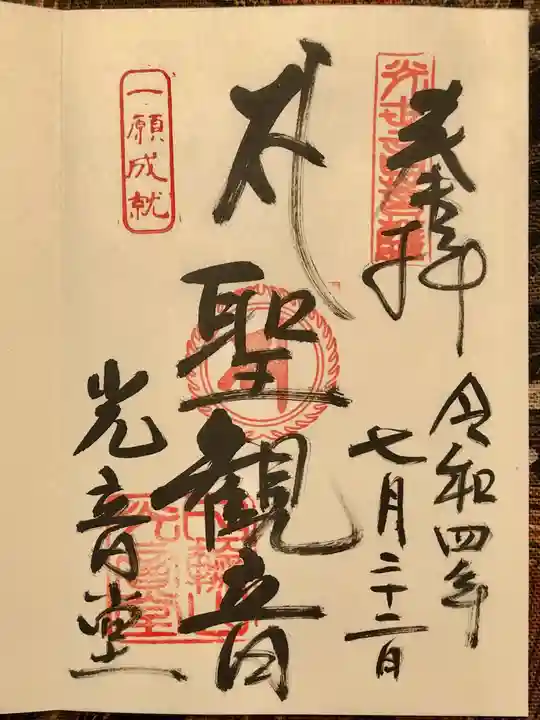 奉拝
令和四年
七月二十二日
聖観音
光音堂
一願成就